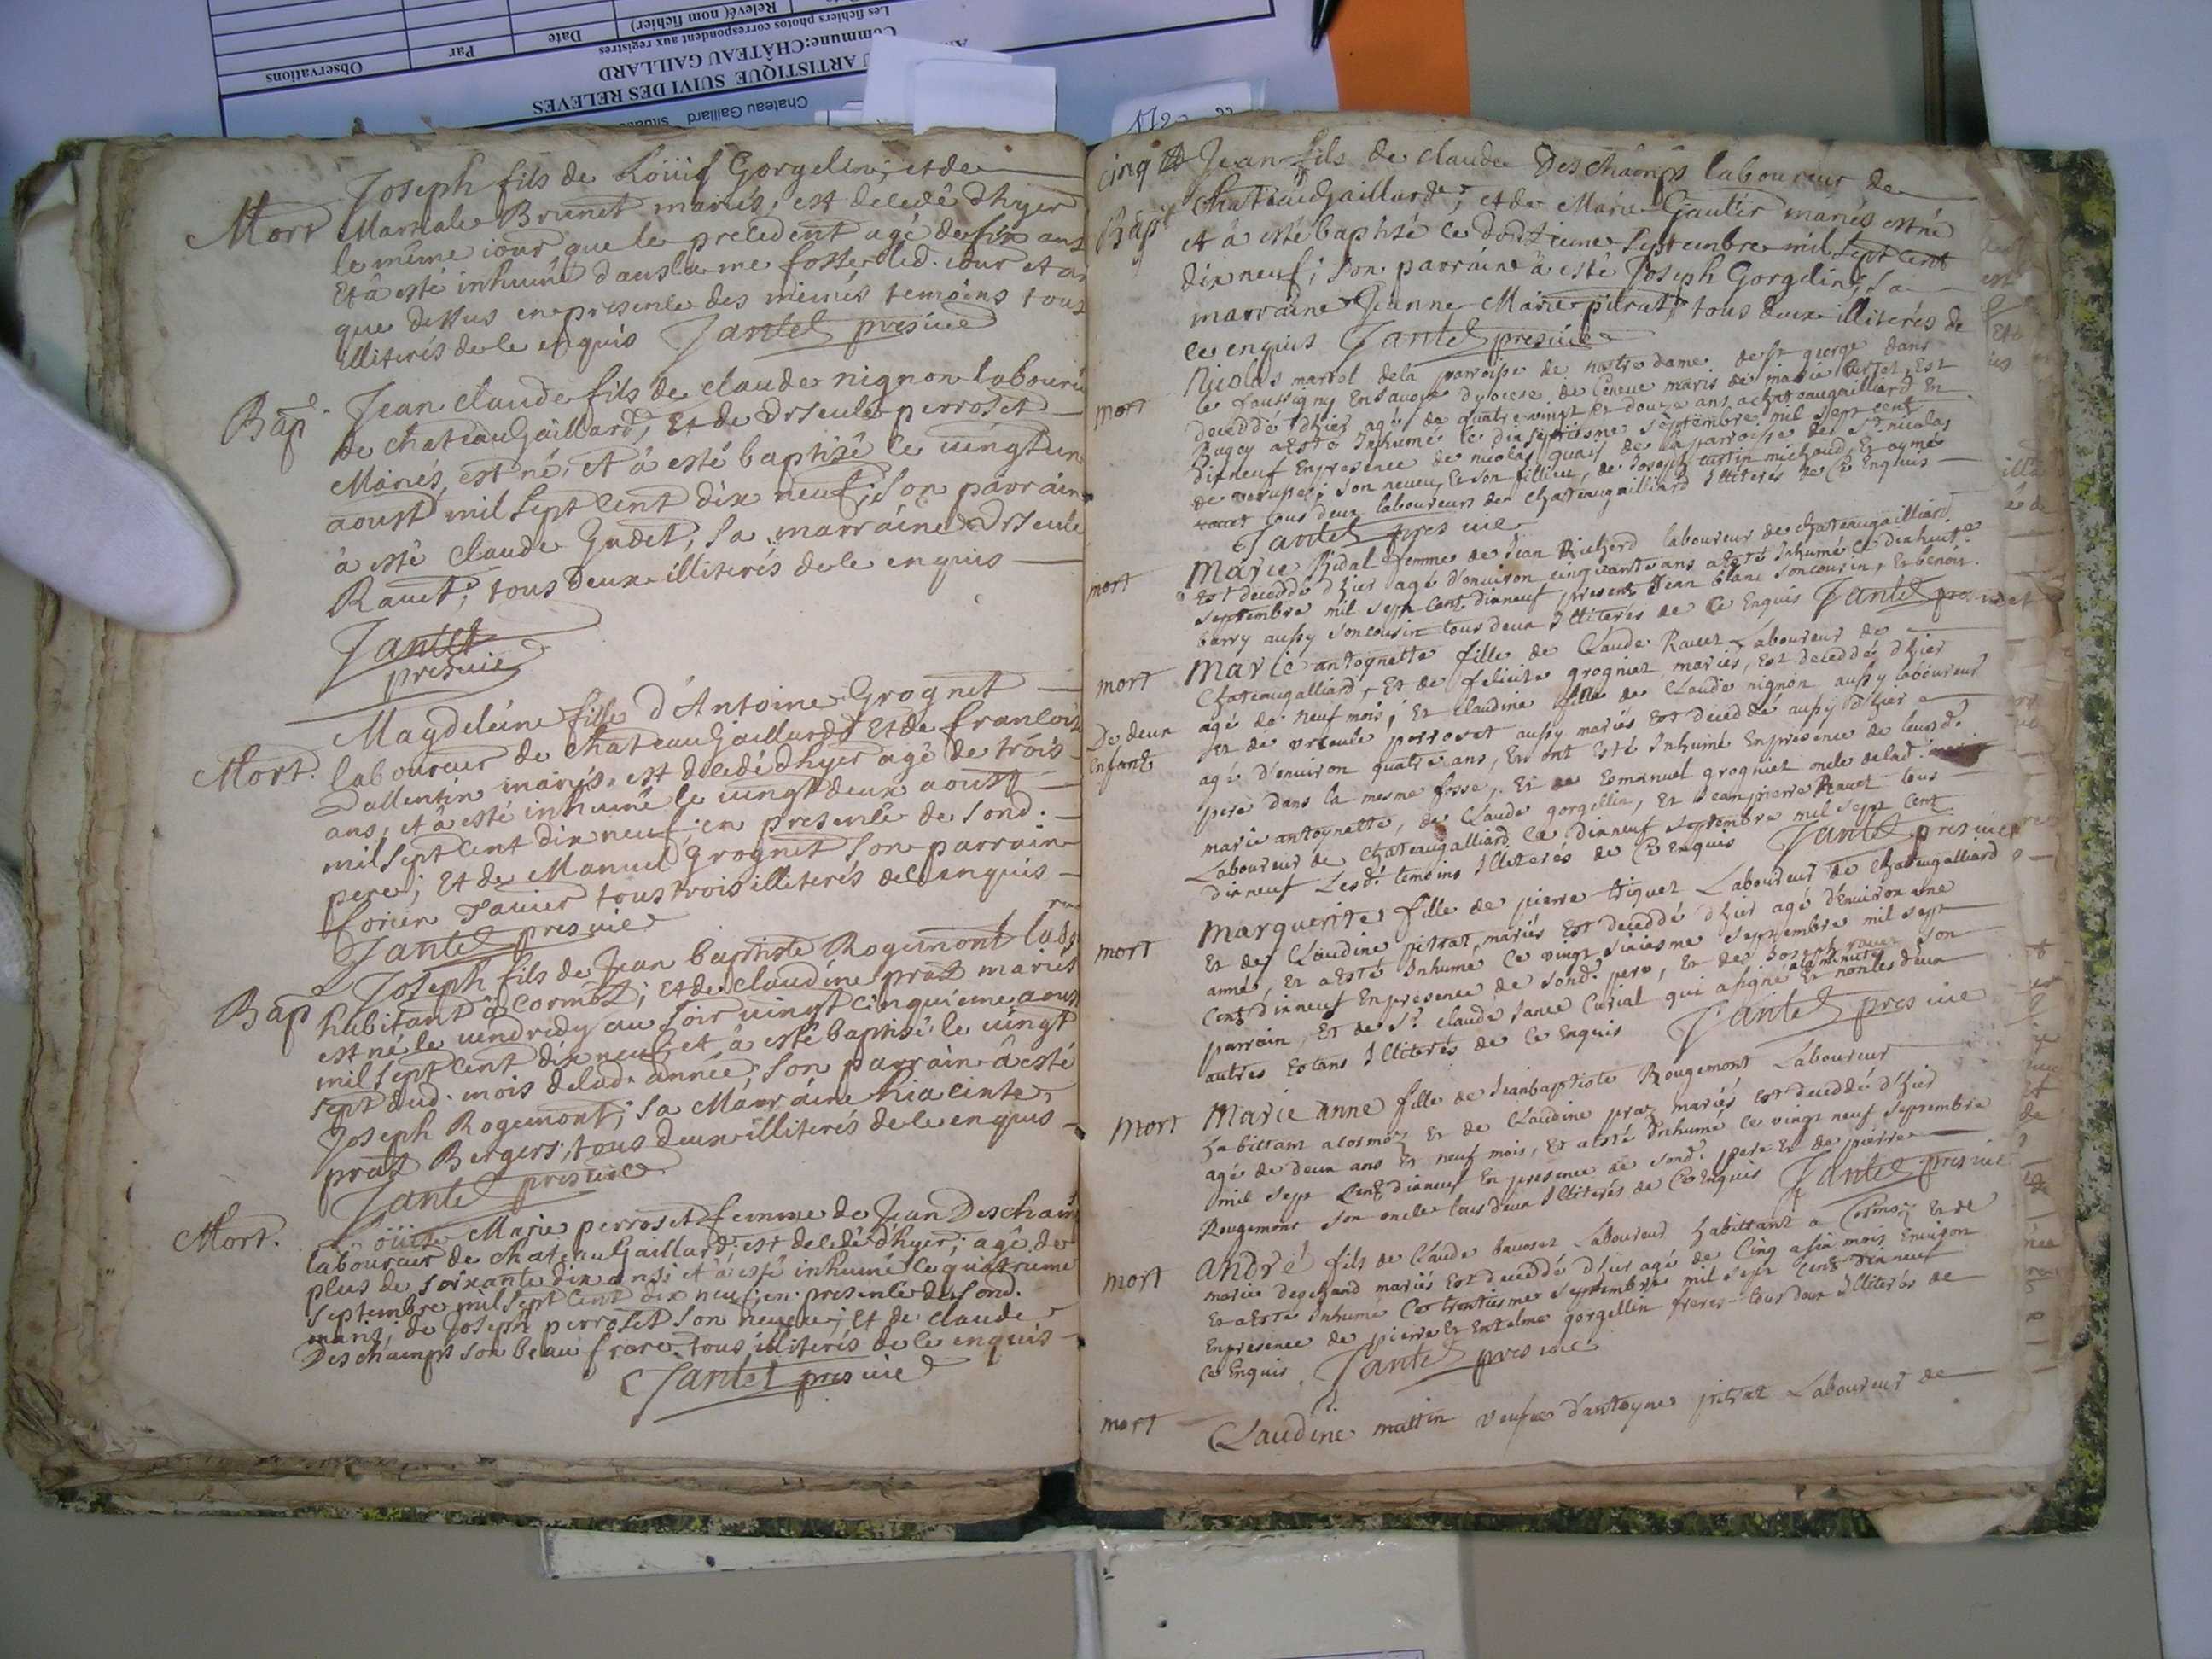 Observations
Par
Date
Relevé( nom fichier)
Les fichiers photos correspondent aux registres
Commune:CHÂTEAU GAILLARD
ARTISTIQUE SUIVI DES RELEVES
Chateau Gaillard
Joseph fils de Loüis Gorgelin, et de
Mort
Martiale Brunet mariés, est decedé dhyer
le même iour que le precedent agé de six ans
Et à esté inhumé dans la me fosse led. iour et an
que dessus en presence des mêmes temoins tous
illiterés de ce enquis Jantet pres uic
Bap
Jean claude fils de claude nignon laboureu
de chateauGaillard, Et de Urseule perroset
Mariés, est né, et à esté baptisé le uingtun
aoust mil sept cent dix neuf; Son parrain
à esté claude Gudet, sa marraine Urseule
Rauet, tous deux illiterés de ce enquis
Jantet
pres uic
Magdeleine fille d'Antoine Grognet
Mort.
laboureur de chateauGaillard Et de francoise
Dallentin mariés, est decedé dhyer agé de trois
ans, et à esté inhumé le uingt deux aoust
mil sept cent dix neuf; en presence de sond.
pere; Et de Manuel Grognet son parrain
tous trois illiterés de ce enquis
Jantet pres uic
Joseph fils de Jean baptiste Rogemont labo
Bap
habitant à Cormoz; et de claudine prat mariés
est né le uendredy au soir uingt cinquieme aoust
mil sept cent dix neuf, et à esté baptisé le uingt
sept dud. mois de lad. année; Son parrain à esté
Joseph Rogemont; sa Marraine hiacinte
prat Bergers; tous deux illiterés de ce enquis
Jantet pres uic
Mort.
Loüise Marie perroset femme de Jean Descham
laboureur de chateauGaillard, est decedé dhyer; agé de
plus de soixante dix ans; et à esté inhumé le quatrieme
septembre mil sept cent dix neuf; en presence de sond.
mari; de Joseph perroset son neueu; Et de claude
Deschamps son beau frere tous illiterés de ce enquis
Jantet pres uic
cinq Jean fils de claude Deschamps laboureur de
Bapt
chateauGaillard; et de Marie Gautier mariés est né
et à esté baptisé le douzieme septembre mil sept cent
dix neuf; Son parrain à esté Joseph Gorgelin, sa
marraine Jeanne Marie pitrat, tous deux illiterés de
ce enquis Jantet pres uic
mort
Nicolas martel de la parroisse de nostre dame de st george dans
le faussigny En sauoye dyocese de Geneue maris de marie Est
deceddé d'hier agé de quatre vingt Et douze ans a chateaugailliard En
Bugey a Esté Inhumé le dixseptiesme septembre mil sept cent
dixneuf En presence de nicolas quay de la parroisse de st nicolas
de son neueu, Et son fillieu, de Joseph michaud, Et aymé
tous deux laboureurs de chateaugailliard Illiterés de Ce Enquis
Jantet pres uic
mort
Marie Vidal femme de Jean Richerd laboureur de chateaugailliard
Est deceddé d'hier agé d'enuiron cinquante ans a Esté Inhumé le dixhuit
septembre mil sept cent dixneuf present Jean blanc son cousin, Et benoit
barry aussy son cousin tous deux Illiterés de Ce Enquis Jantet pres uic
mort
De deux
Enfants
Marie antoynette fille de Claude Rauet Laboureur de
Chateaugalliard, Et de felicite grogniet mariés, Est deceddé d'hier
agé de neuf mois; Et Claudine fille de Claude nignon aussy laboureur
Et de urseule perroset aussy mariés Est deceddé aussy d'hier
agé d'enuiron quatre ans, Ent ont Esté Inhumé En presence de leurs d.
pere dans la mesme fosse, Et de Emanuel grogniet oncle de lad.
marie antoynette, de Claude gorgellin, Et Jean pierre Rauet tous
Laboureur de Chateaugalliard Ce dixneuf septembre mil sept Cent
dixneuf Lesd. temoins Illiterés de Ce Enquis Jantet pres uic
mort
Marguerite fille de pierre triquet Laboureur de chateugalliard
Et de Claudine pitrat mariés Est deceddé d'hier agé d'Enuiron une
année, Et a Esté Inhume Ce vingt sixiesme septembre mil sept
Cent dixneuf En presence de sond. pere, Et de Joseph rauet son
parrain, Et de Sr. Claude Jance Curial qui a signé a la minute Et non les deux
autres Estans Illiterés de Ce Enquis Jantet pres uic
Mort
Marie anne fille de Jean baptiste Rougemont Laboureur
habittant a Cormoz Et de Claudine praz mariés Est deceddé d'hier
agé de deux ans Et neuf mois, Et a Esté Inhumé Ce vingt neuf septembre
mil sept Cent dixneuf En presence de sond. pere Et de pierre
Rougemont son oncle tous deux Illiterés de Ce Enquis Jantet pres uic
mort
André fils de Claude bauoset Laboureur habittant a Cormoz Et de
marie mariés Est deceddé d'hier agé de Cinq a six mois Enuiron
Et a Esté Inhume Ce trentiesme septembre mil sept Cent dixneuf
En presence de pierre Et Entelme gorgellin freres tous deux Illiterés de
Ce Enquis, Jantet pres uic
mort
Claudine mattin veufue d'antoyne pitrat Laboureur de